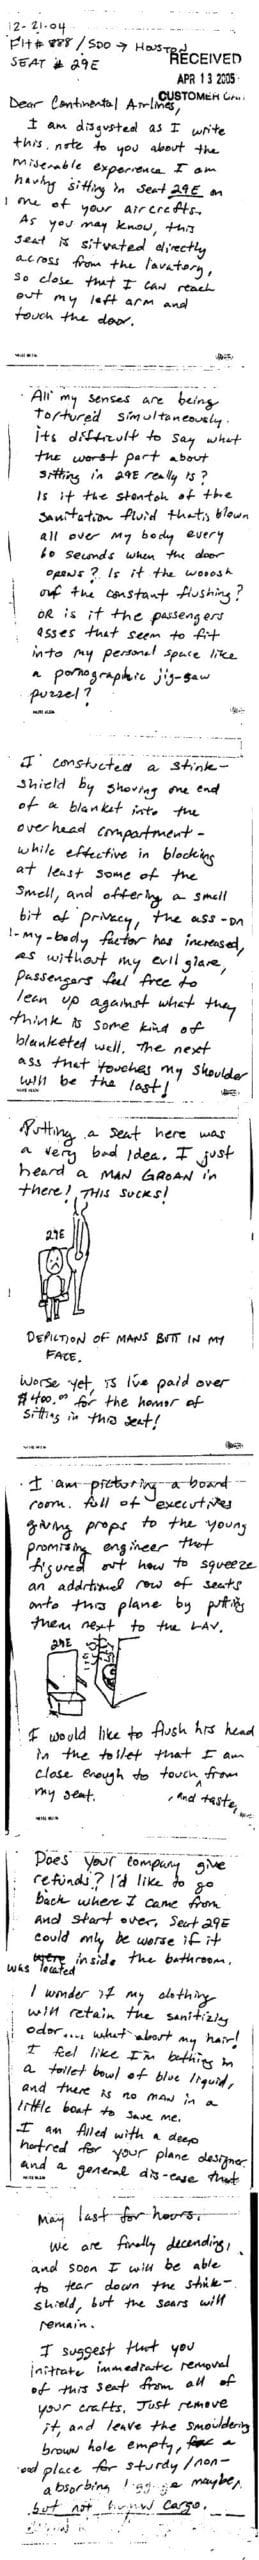 12-21-04
Flt # 888 / SDO → HOUSTON
SEAT # 29E
RECEIVED
APR 13 2005
CUSTOMER CARE
Dear Continental Airlines,
I am disgusted as I write
this note to you about the
miserable experience I am
having sitting in seat 29E on
one of your aircrafts.
As you may know, this
seat is situated directly
across from the lavatory,
so close that I can reach
out my left arm and
touch the door.
All my senses are being
tortured simultaneously.
Its difficult to say what
the worst part about
sitting in 29E really is?
Is it the stentch of the
sanitation fluid that is blown
all over my body every
60 seconds when the door
opens? Is it the wooosh
of the constant flushing?
OR is it the passengers
asses that seem to fit
into my personal space like
a pornographic jig-saw
puzzel?
I constucted a stink-
shield by shoving one end
of a blanket into the
overhead compartment -
while effective in blocking
at least some of the
smell, and offering a small
bit of privacy, the ass-on
-my-body factor has increased,
as without my evil glare,
passengers feel free to
lean up against what they
think is some kind of
blanketed wall. The next
ass that touches my shoulder
will be the last!
Putting a seat here was
a very bad idea. I just
heard a MAN GROAN in
there! THIS SUCKS!
29E
DEPICTION OF MANS BUTT IN MY
FACE.
Worse yet, is I've paid over
$400.00 for the honor of
sitting in this seat!
I am picturing a board
room, full of executives
giving props to the young
promising engineer that
figured out how to squeeze
an additional row of seats
onto this plane by putting
them next to the LAV.
29E
I would like to flush his head
in the toilet that I am
close enough to touch, from
my seat. and taste,
Does your company give
refunds? I'd like to go
back where I came from
and start over. Seat 29E
could only be worse if it
was located inside the bathroom.
I wonder if my clothing
will retain the sanitizing
odor.... what about my hair!
I feel like I'm bathing in
a toilet bowl of blue liquid,
and there is no man in a
little boat to save me.
I am filled with a deep
hatred for your plane designer
and a general dis-ease that
may last for hours.
We are finally decending,
and soon I will be able
to tear down the stink-
shield, but the scars will
remain.
I suggest that you
initiate immediate removal
of this seat from all of
your crafts. Just remove
it, and leave the smouldering
brown hole empty, a
place for sturdy/non-
absorbing luggage maybe,
but not human cargo.